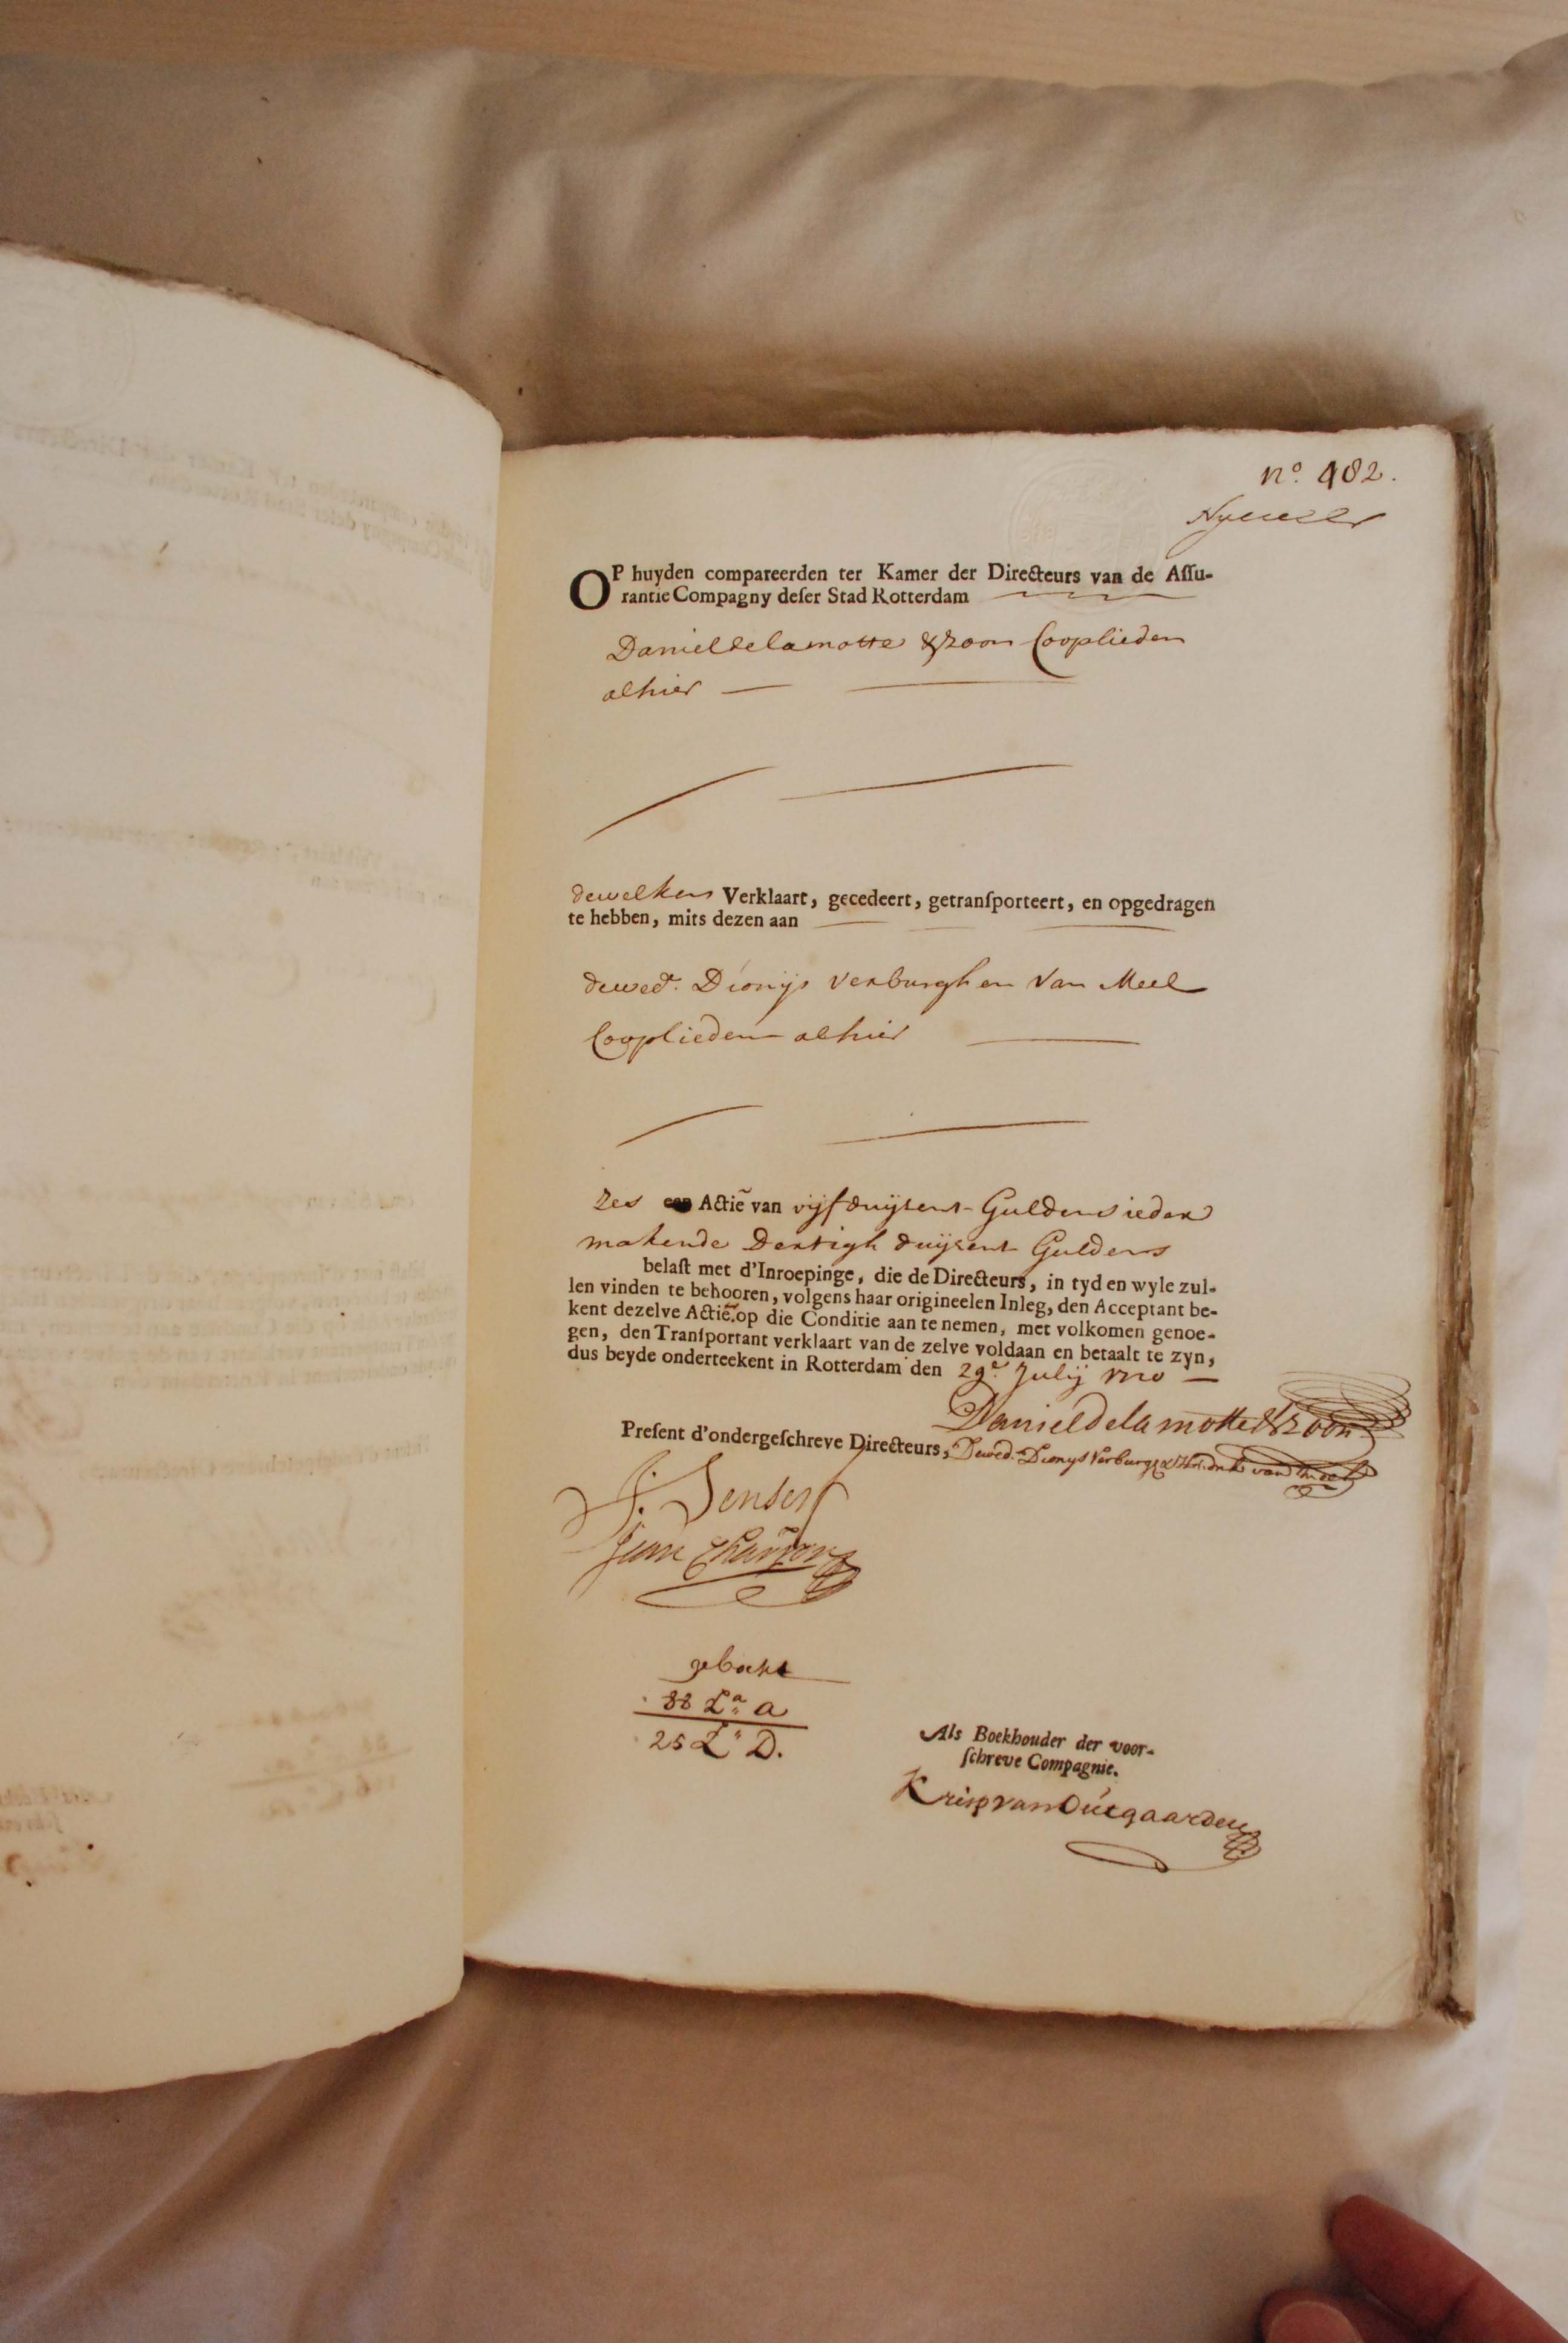 nº. 482.
OP huyden compareerden ter Kamer der Directeurs van de Assu-
rantie Compagny deser Stad Rotterdam
Daniel de la motte & zoon Cooplieden
alhier
dewelken Verklaart, gecedeert, getransporteert, en opgedragen
te hebben, mits dezen aan
de wed. Dionijs Verburgh en Van Meel
Cooplieden alhier
Zes Actiē van vijf duijsent Guldens ieder
makende Dertigh duijsent Guldens
belast met d'Inroepinge, die de Directeurs, in tyd en wyle zul-
len vinden te behooren, volgens haar origineelen Inleg, den Acceptant be-
kent dezelve Actiē. op die Conditie aan te nemen, met volkomen genoe-
gen, den Transportant verklaart van de zelve voldaan en betaalt te zyn,
dus beyde onderteekent in Rotterdam den 29e. Julij 1720
Daniel de la motte & zoon
Present d'ondergeschreve Directeurs, De wed. Dionys Verburgh van Meel
J. Senserf
Jean Charron
geboekt
88 La a
25 La D.
Als Boekhouder der voor-
schreve Compagnie.
Krisp van Duegaarden